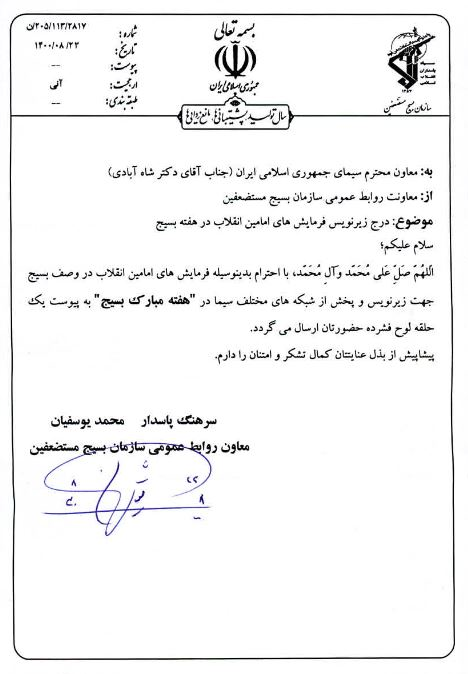 بسمه تعالی
جمهوری اسلامی ایران
شماره: ۲۰۵/۱۱۳/۲۸۱۷/ن
تاریخ: ۱۴۰۰/۰۸/۲۳
پیوست: --
ارجحیت: آنی
طبقه بندی: --
سپاه
پاسداران
انقلاب
اسلامی
سازمان بسیج مستضعفین
سال تولید، پشتیبانی‌ها، مانع زدایی‌ها
به: معاون محترم سیمای جمهوری اسلامی ایران (جناب آقای دکتر شاه آبادی)
از: معاونت روابط عمومی سازمان بسیج مستضعفین
موضوع: درج زیرنویس فرمایش های امامین انقلاب در هفته بسیج
سلام علیکم؛
اللهُمَ صَلِّ عَلی مُحَمّد وآلِ مُحَمّد، با احترام بدینوسیله فرمایش های امامین انقلاب در وصف بسیج
جهت زیرنویس و پخش از شبکه های مختلف سیما در "هفته مبارک بسیج" به پیوست یک
حلقه لوح فشرده حضورتان ارسال می گردد.
پیشاپیش از بذل عنایتتان کمال تشکر و امتنان را دارم.
سرهنگ پاسدار محمد یوسفیان
معاون روابط عمومی سازمان بسیج مستضعفین